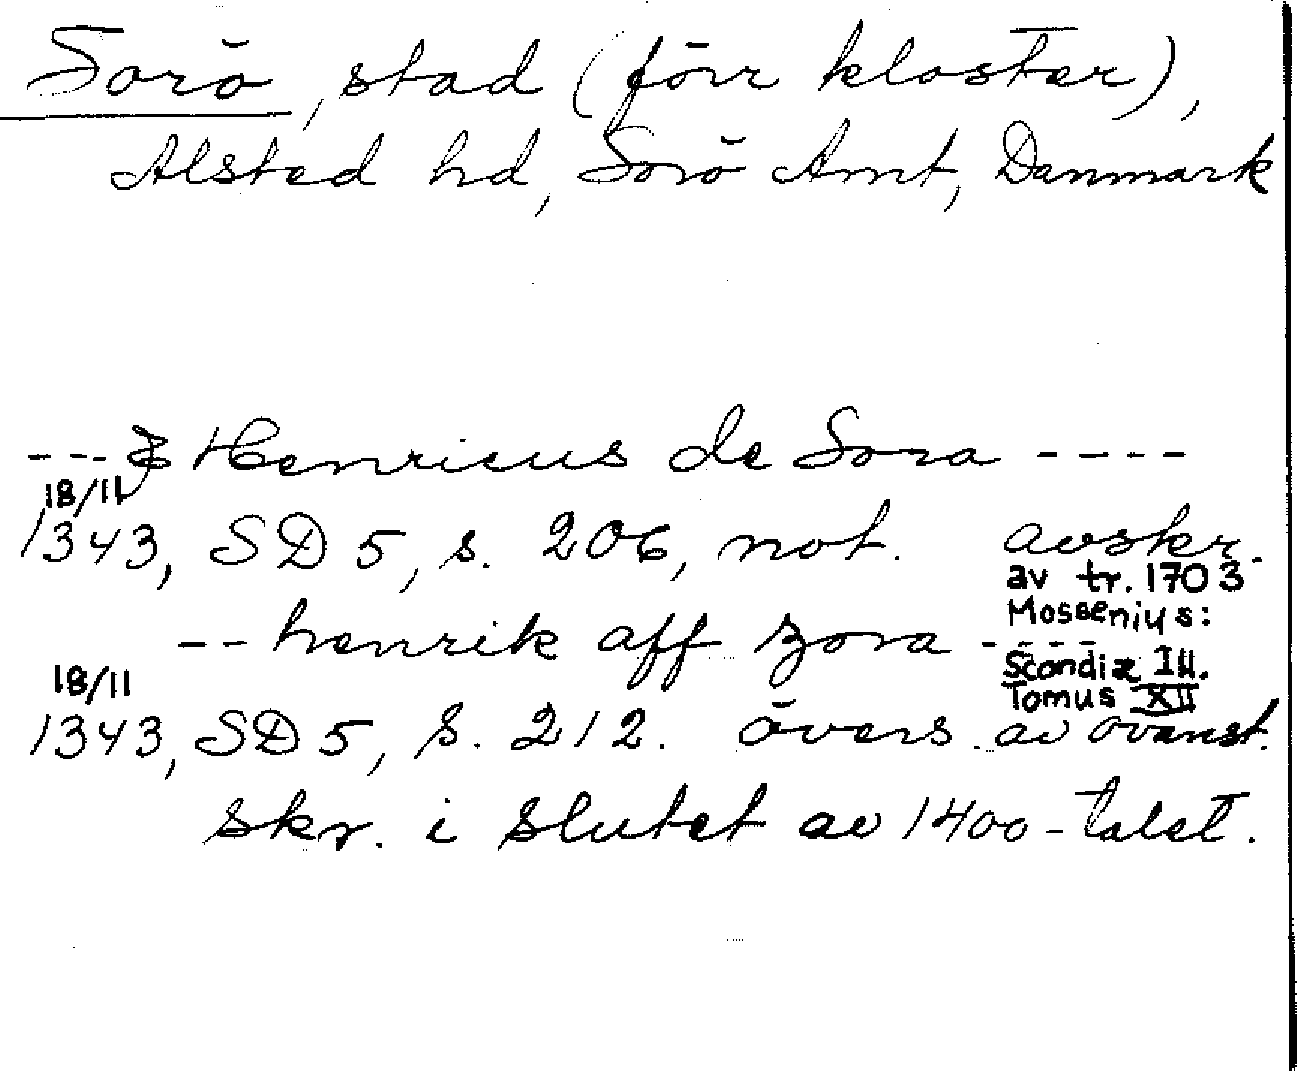 Sorö, stad (förr kloster),
Alsted hd, Sorö Amt, Danmark
--- & Henricus de Sora ----
18/11
1343, SD 5, s. 206, not. avskr.
av tr. 1703
Messenius:
-- henrik aff zora ----
Scondiæ Ill.
18/11
Tomus XII
1343, SD 5, s. 212. övers. av ovanst.
skr. i slutet av 1400-talet.